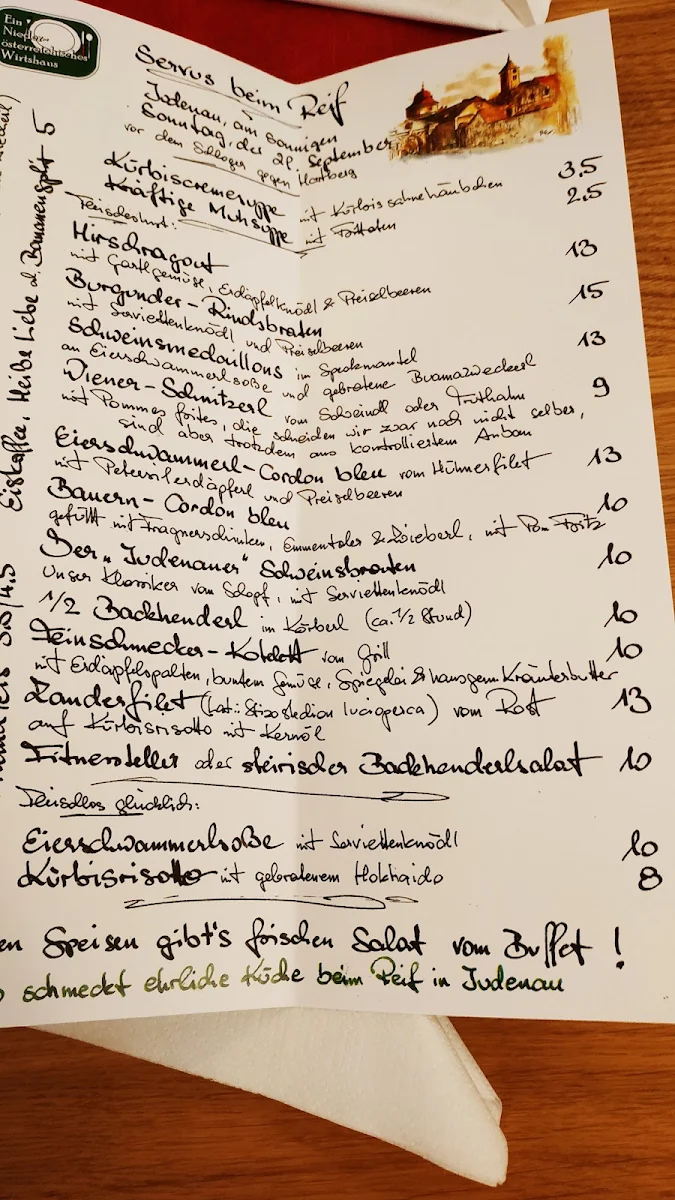 Ein
Nieder-
österreichisches
Wirtshaus
Servus beim Reif
Judenau, am sonnigen
Sonntag, der 21. September
vor dem Schlager gegen Hartberg
Kürbiscremesuppe mit Kürbissahnehäubchen 3,5
Kräftige Muhsuppe mit Frittaten 2,5
Fleischeslust:
Hirschragout 13
mit Gartlgemüse, Erdäpfelknödl & Preiselbeeren
Burgunder-Rindsbraten 15
mit Serviettenknödl und Preiselbeeren
Schweinsmedaillons im Speckmantel 13
an Eierschwammerlsoße und gebratene
Wiener-Schnitzerl vom Schweindl oder Truthahn 9
mit Pommes frites, die schneiden wir zwar noch nicht selber,
sind aber trotzdem aus kontrolliertem Anbau
Eierschwammerl-Cordon bleu vom Hühnerfilet 13
mit Petersilerdäpferl und Preiselbeeren
Bauern-Cordon bleu 10
gefüllt mit Fragnerschinken, Emmentaler & Zwieberl, mit Pom Fritz
Der "Judenauer" Schweinsbraten 10
Unser Klassiker vom Schopf, mit Serviettenknödl
1/2 Backhenderl im Körberl (ca. 1/2 Stund) 10
Feinschmecker-Kotlett vom Grill 10
mit Erdäpfelspalten, buntem Gemüse, Spiegelei & hausgem. Kräuterbutter
Zanderfilet (lat.: Stizostedion lucioperca) vom Rost 13
auf Kürbisrisotto mit Kernöl
Fitnessteller oder steirischer Backhenderlsalat 10
Fleischlos glücklich:
Eierschwammerlsoße mit Serviettenknödl 10
Kürbisrisotto mit gebratenem Hokkaido 8
en Speisen gibt's frischen Salat vom Buffet!
o schmeckt ehrliche Küche beim Reif in Judenau
Eiskaffee, Heiße Liebe od. Bananensplit 5
3.5/4.5